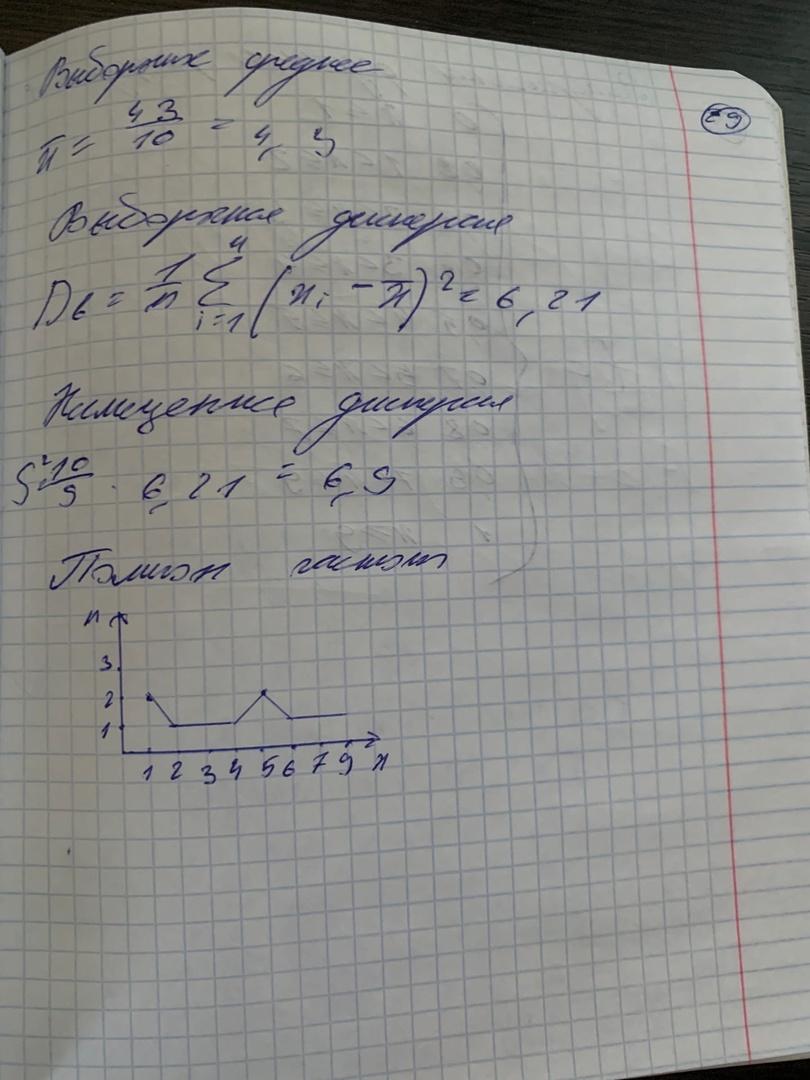 29
Выборочное среднее
x̄ = 43/10 = 4,3
Выборочная дисперсия
Dв = 1/n ∑ i=1 n (xi - x̄)² = 6,21
Несмещенная дисперсия
S² 10/9 · 6,21 = 6,9
Полигон частот
n
3
2
1
1 2 3 4 5 6 7 9 x